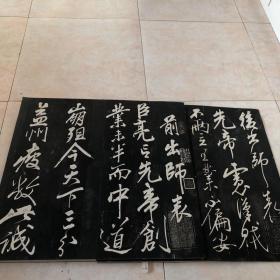 後出師表
先帝慮漢賊
不兩立王業不偏安
前出師表
臣亮言先帝創
業未半而中道
崩殂今天下三分
益州疲敝此誠